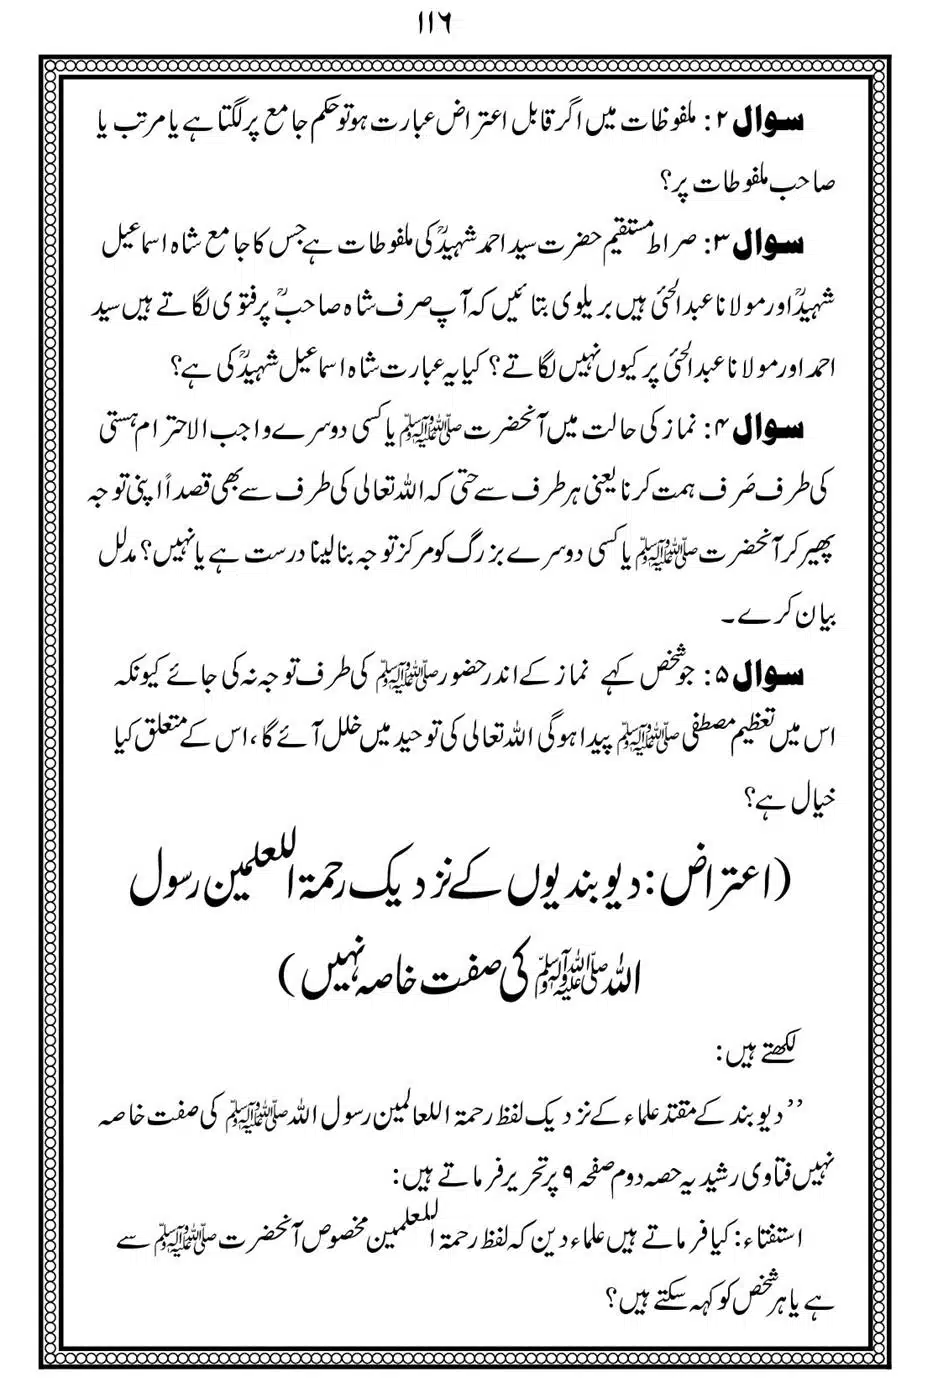 ۱۱۶
سوال ۲: ملفوظات میں اگر قابل اعتراض عبارت ہو تو حکم جامع پر لگتا ہے یا مرتب یا
صاحب ملفوظات پر؟
سوال ۳: صراط مستقیم حضرت سید احمد شہیدؒ کی ملفوظات ہے جس کا جامع شاہ اسماعیل
شہیدؒ اور مولانا عبدالحئی ہیں بریلوی بتائیں کہ آپ صرف شاہ صاحبؒ پر فتوی لگاتے ہیں سید
احمد اور مولانا عبدالحئی پر کیوں نہیں لگاتے؟ کیا یہ عبارت شاہ اسماعیل شہیدؒ کی ہے؟
سوال ۴: نماز کی حالت میں آنحضرت ﷺ یا کسی دوسرے واجب الاحترام ہستی
کی طرف صَرف ہمت کرنا یعنی ہر طرف سے حتی کہ اللہ تعالی کی طرف سے بھی قصداً اپنی توجہ
پھیر کر آنحضرت ﷺ یا کسی دوسرے بزرگ کو مرکز توجہ بنا لینا درست ہے یا نہیں؟ مدلل
بیان کرے۔
سوال ۵: جو شخص کہے نماز کے اندر حضور ﷺ کی طرف توجہ نہ کی جائے کیونکہ
اس میں تعظیم مصطفی ﷺ پیدا ہوگی اللہ تعالی کی توحید میں خلل آئے گا، اس کے متعلق کیا
خیال ہے؟
(اعتراض: دیوبندیوں کے نزدیک رحمۃ اللعلمین رسول
اللہ ﷺ کی صفت خاصہ نہیں)
لکھتے ہیں:
’’دیوبند کے مقتدٰ علماء کے نزدیک لفظ رحمۃ اللعالمین رسول اللہ ﷺ کی صفت خاصہ
نہیں فتاوی رشیدیہ حصہ دوم صفحہ ۹ پر تحریر فرماتے ہیں:
استفتاء: کیا فرماتے ہیں علماء دین کہ لفظ رحمۃ اللعلمین مخصوص آنحضرت ﷺ سے
ہے یا ہر شخص کو کہہ سکتے ہیں؟